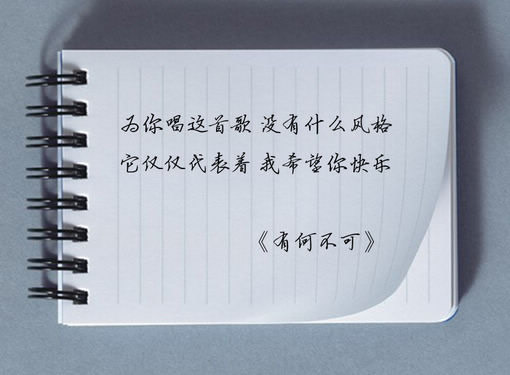 为你唱这首歌 没有什么风格
它仅仅代表着 我希望你快乐
《有何不可》